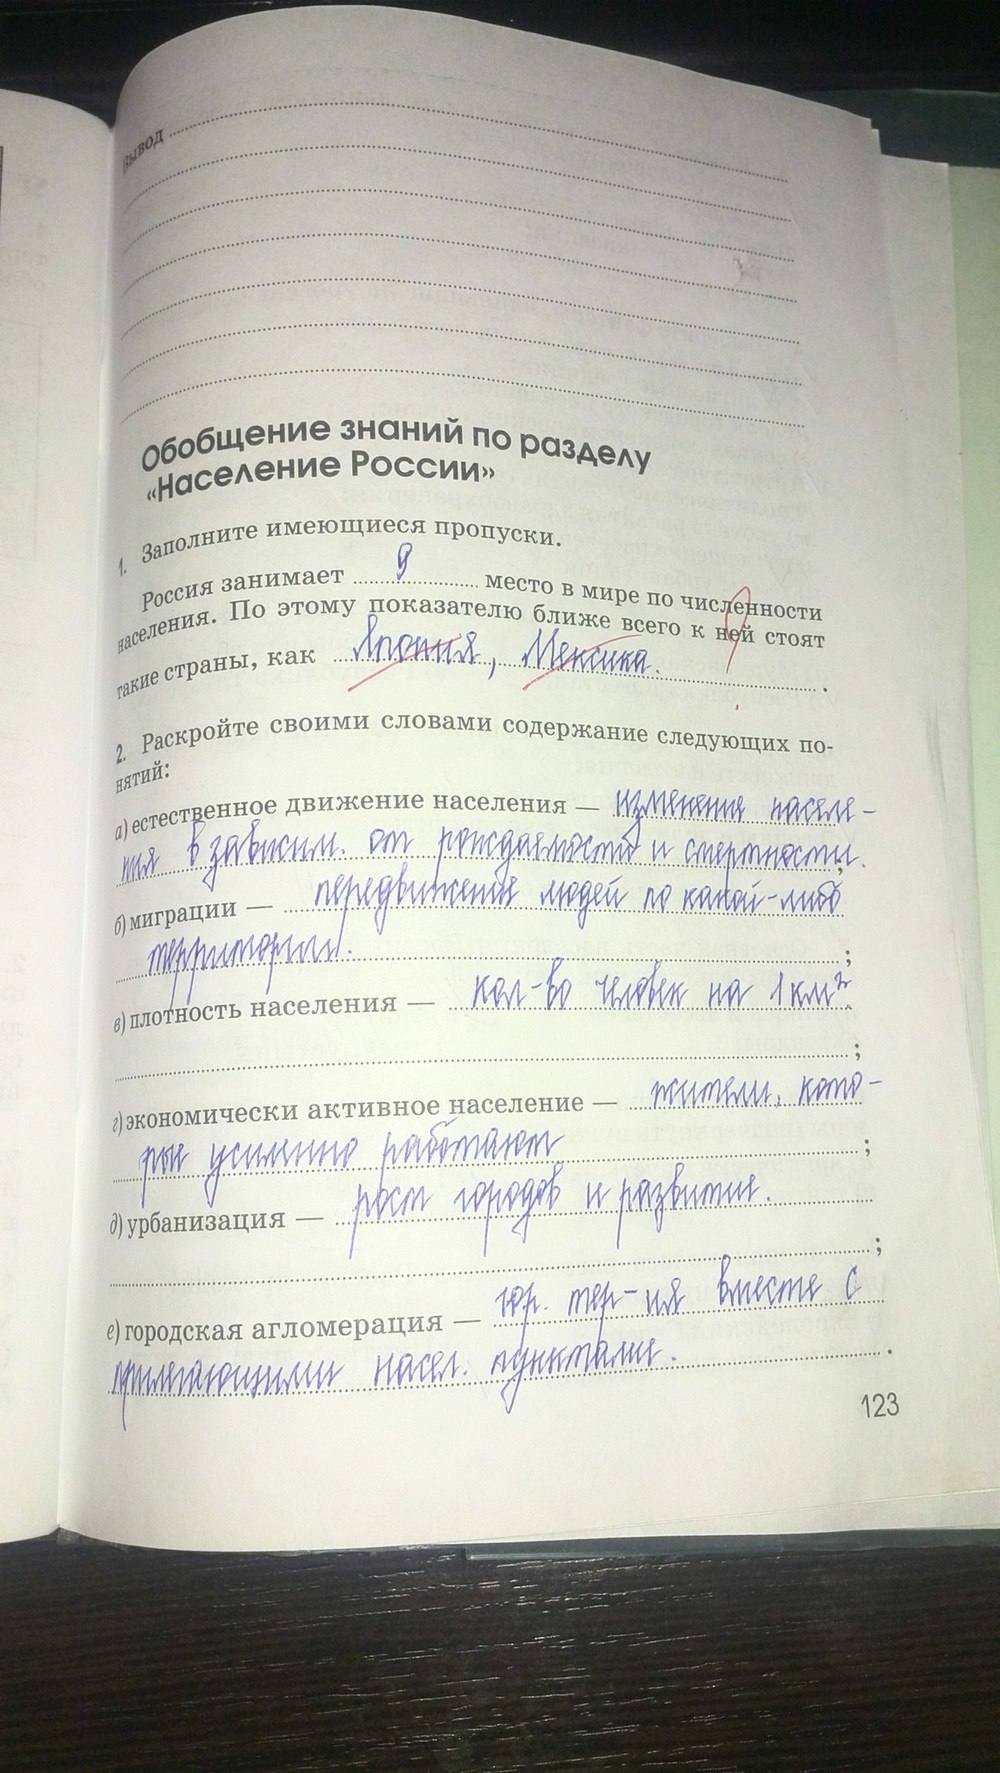 Вывод
Обобщение знаний по разделу
«Население России»
1. Заполните имеющиеся пропуски.
Россия занимает 9 место в мире по численности
населения. По этому показателю ближе всего к ней стоят
такие страны, как Япония, Мексика.
2. Раскройте своими словами содержание следующих по-
нятий:
а) естественное движение населения — изменение населе-
ния в зависим. от рождаемости и смертности.;
б) миграции — передвижение людей по какой-либо
территории. ;
в) плотность населения — кол-во человек на 1 км².
;
г) экономически активное население — жители, кото-
рые усиленно работают ;
д) урбанизация — рост городов и развитие.
;
е) городская агломерация — гор. тер-ия вместе с
прилегающими насел. пунктами. .
123